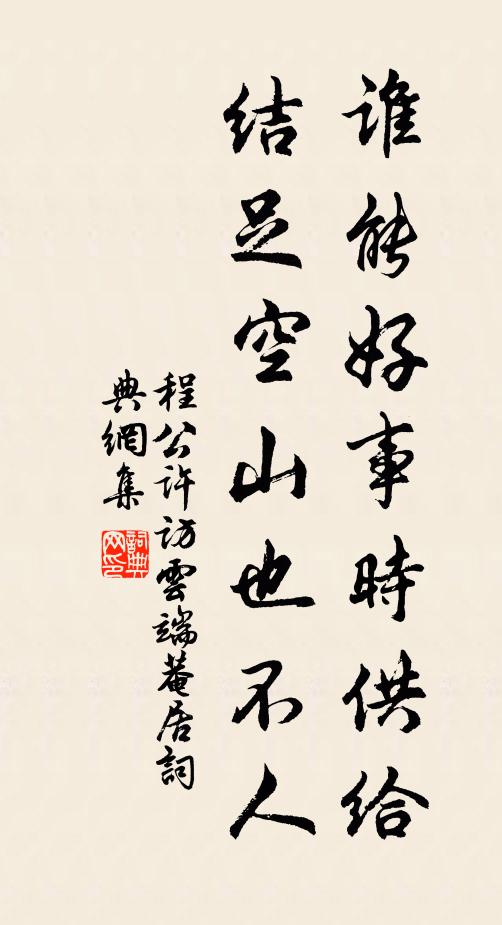 谁能好事時供给
结足空山也不人
程公许访雲端菴居詞
典網集
詞典网印